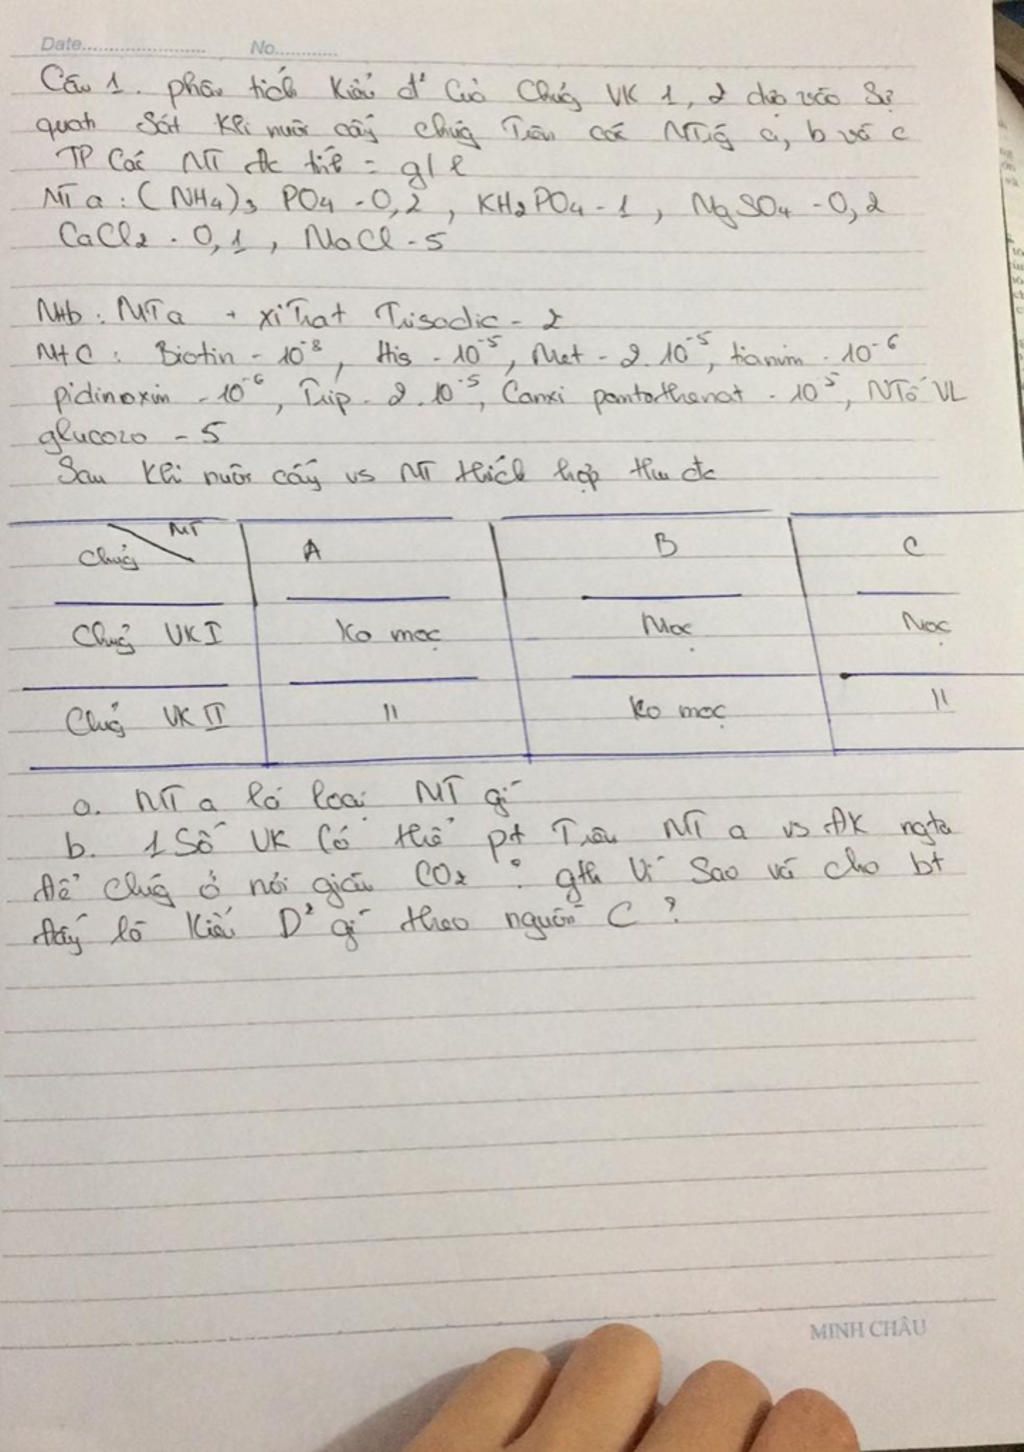 Date.................... No............
Câu 1. phân tích kiểu d² của chủg VK 1, 2 dựa vào sự
quan sát khi nuôi cấy chúg Trên các MTig a, b và c
TP Các MT đc tíh = g/l
MT a : (NH4)3 PO4 - 0,2 , KH2PO4 - 1 , MgSO4 - 0,2
CaCl2 - 0,1 , NaCl - 5
Mtb : MTa + xiTrat Trisodic - 2
Mt C : Biotin - 10⁻⁸, His - 10⁻⁵, Met - 2.10⁻⁵, tianim - 10⁻⁶
pidinoxin - 10⁻⁶, Trip - 2.10⁻⁵, Canxi pantothenat - 10⁵, NTố VL
glucozo - 5
Sau khi nuôi cấy vs MT thích hợp thu đc
MT
Chủg A B C
Chủg VK I Ko mọc Mọc Mọc
Chủg VK II " Ko mọc "
a. MT a là loại MT gì
b. 1 Số VK Có thể pt Trên MT a vs ĐK ngta
để chúg ở nơi giàu CO2 : gth Vì sao và cho bt
đấy là kiểu D² gì theo nguồn C ?
MINH CHÂU